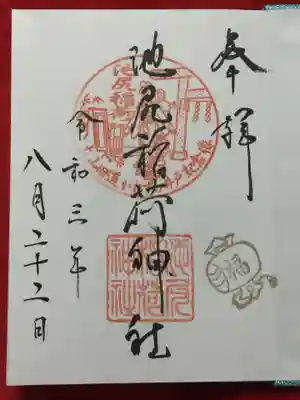 奉拝
池尻稲荷神社
令和三年
八月二十二日
池尻稲荷
池尻
稲荷
神社
福